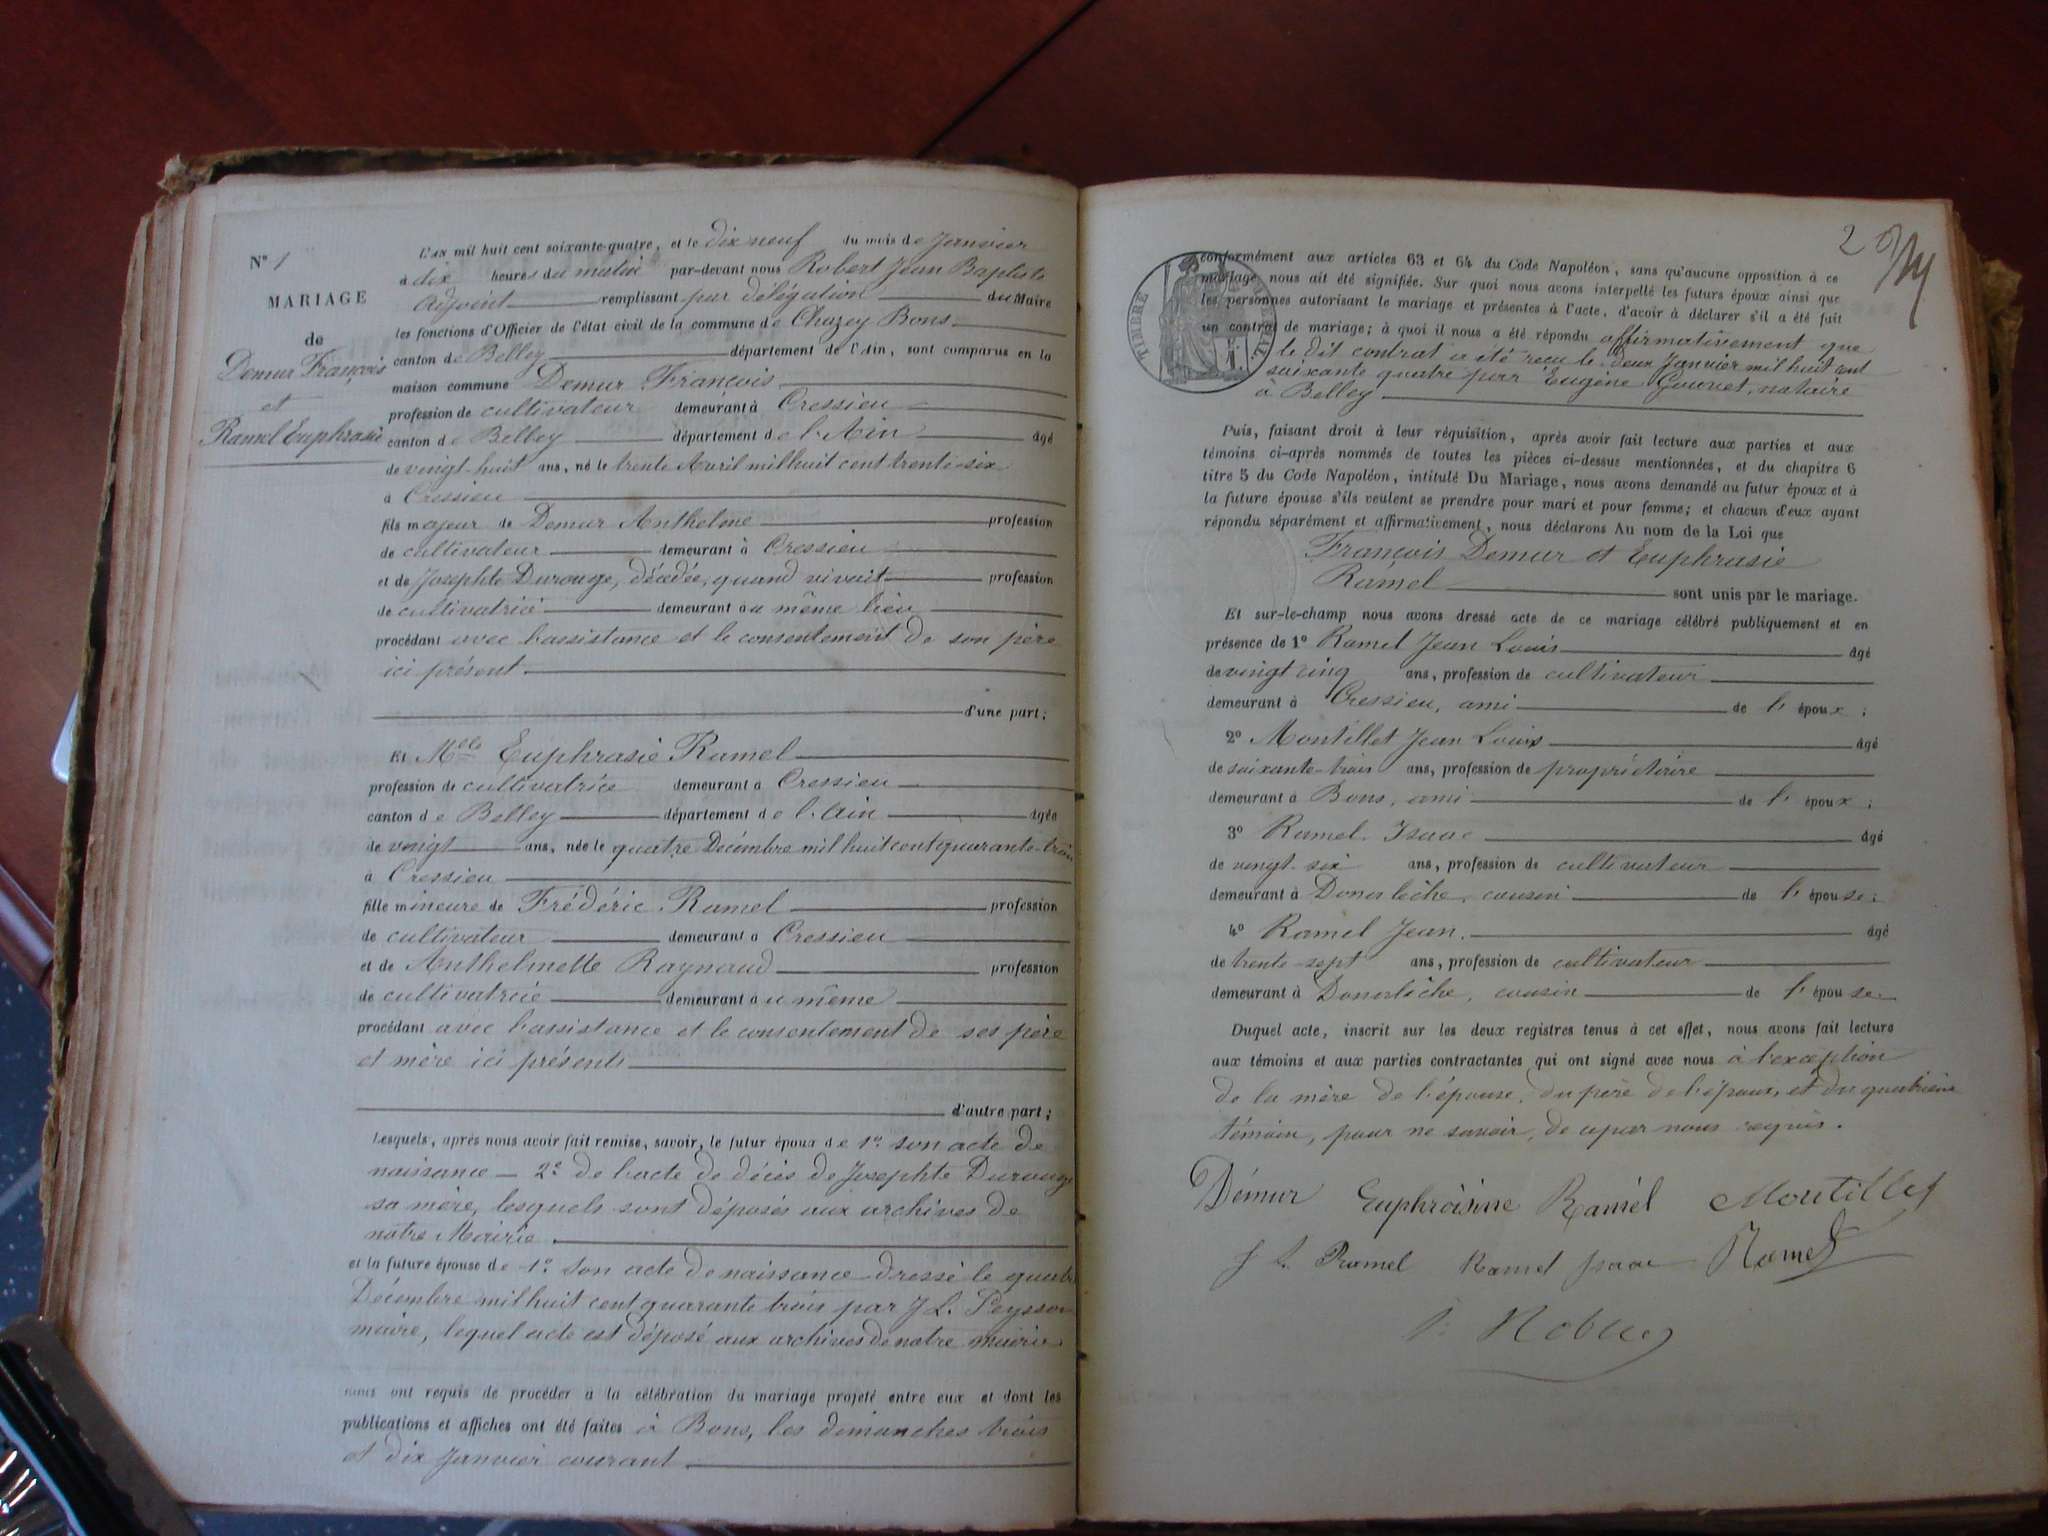 N° 1
MARIAGE
de
Demur François
et
Ramel Euphrasie
L'AN mil huit cent soixante-quatre, et le dix neuf du mois de Janvier
à dix heures du matin par-devant nous Robert Jean Baptiste
Adjoint remplissant par délégation du Maire
les fonctions d'Officier de l'état civil de la commune de Chazey Bons
canton de Belley département de l'Ain, sont comparus en la
maison commune Demur François
profession de cultivateur demeurant à Cressieu
canton de Belley département de l'Ain âgé
de vingt-huit ans, né le trente Avril mil huit cent trente-six
à Cressieu
fils majeur de Demur Anthelme profession
de cultivateur demeurant à Cressieu
et de Josephte Durouge, décédée, quand vivait profession
de cultivatrice demeurant au même lieu
procédant avec l'assistance et le consentement de son père
ici présent
d'une part;
Et Melle Euphrasie Ramel
profession de cultivatrice demeurant à Cressieu
canton de Belley département de l'Ain âgée
de vingt ans, née le quatre Décembre mil huit cent quarante-trois
à Cressieu
fille mineure de Frédéric Ramel profession
de cultivateur demeurant à Cressieu
et de Anthelmette Raynaud profession
de cultivatrice demeurant au même
procédant avec l'assistance et le consentement de ses père
et mère ici présents
d'autre part;
Lesquels, après nous avoir fait remise, savoir, le futur époux de 1° son acte de
naissance — 2° de l'acte de décès de Josephte Durouge
sa mère, lesquels sont déposés aux archives de
notre Mairie.
et la future épouse de 1° son acte de naissance dressé le quatre
Décembre mil huit cent quarante trois par J L. Peysson
maire, lequel acte est déposé aux archives de notre mairie
nous ont requis de procéder à la célébration du mariage projeté entre eux et dont les
publications et affiches ont été faites à Bons, les dimanches trois
et dix Janvier courant
2
TIMBRE IMPÉRIAL
conformément aux articles 63 et 64 du Code Napoléon, sans qu'aucune opposition à ce
mariage nous ait été signifiée. Sur quoi nous avons interpellé les futurs époux ainsi que
les personnes autorisant le mariage et présentes à l'acte, d'avoir à déclarer s'il a été fait
un contrat de mariage; à quoi il nous a été répondu affirmativement que
le dit contrat a été reçu le deux Janvier mil huit cent
soixante quatre par Eugène notaire
à Belley
Puis, faisant droit à leur réquisition, après avoir fait lecture aux parties et aux
témoins ci-après nommés de toutes les pièces ci-dessus mentionnées, et du chapitre 6
titre 5 du Code Napoléon, intitulé Du Mariage, nous avons demandé au futur époux et à
la future épouse s'ils veulent se prendre pour mari et pour femme; et chacun d'eux ayant
répondu séparément et affirmativement, nous déclarons Au nom de la Loi que
François Demur et Euphrasie
Ramel sont unis par le mariage.
Et sur-le-champ nous avons dressé acte de ce mariage célébré publiquement et en
présence de 1° Ramel Jean Louis âgé
de vingt cinq ans, profession de cultivateur
demeurant à Cressieu, ami de l'époux;
2° Montillet Jean Louis âgé
de soixante-trois ans, profession de propriétaire
demeurant à Bons, ami de l'époux;
3° Ramel Isaac âgé
de vingt-six ans, profession de cultivateur
demeurant à Donalèche, cousin de l'épouse;
4° Ramel Jean. âgé
de trente-sept ans, profession de cultivateur
demeurant à Donalèche, cousin de l'épouse.
Duquel acte, inscrit sur les deux registres tenus à cet effet, nous avons fait lecture
aux témoins et aux parties contractantes qui ont signé avec nous à l'exception
de la mère de l'épouse, du père de l'époux, et du quatrième
témoin, pour ne savoir, de ce par nous requis.
Démur Euphroisine Ramel Montillet
J L. Ramel Ramel Isaac Ramel